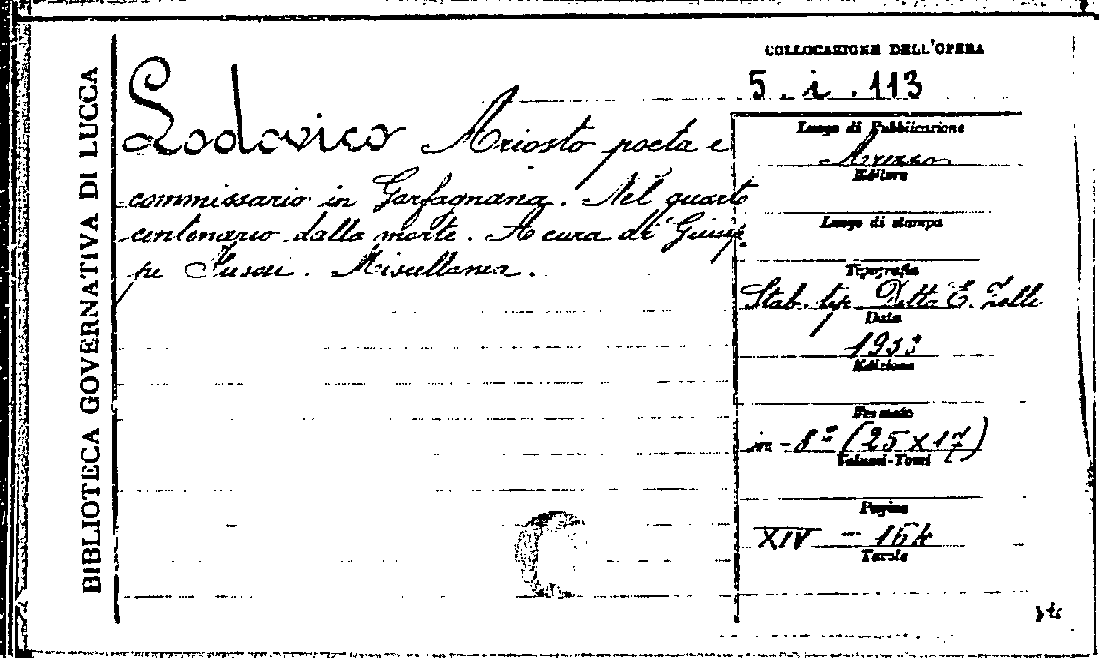 BIBLIOTECA GOVERNATIVA DI LUCCA
COLLOCAZIONE DELL'OPERA
5. i. 113
Lodovico Ariosto poeta e
commissario in Garfagnana. Nel quarto
centenario dalla morte. A cura di Giusep-
pe Fusai. Miscellanea.
Luogo di Pubblicazione
Arezzo
Editore
Luogo di stampa
Tipografia
Stab. tip. Ditta E. Zelli
Data
1933
Edizione
Formato
in-8º (25 x 17)
Volumi-Tomi
Pagine
XIV - 164
Tavole